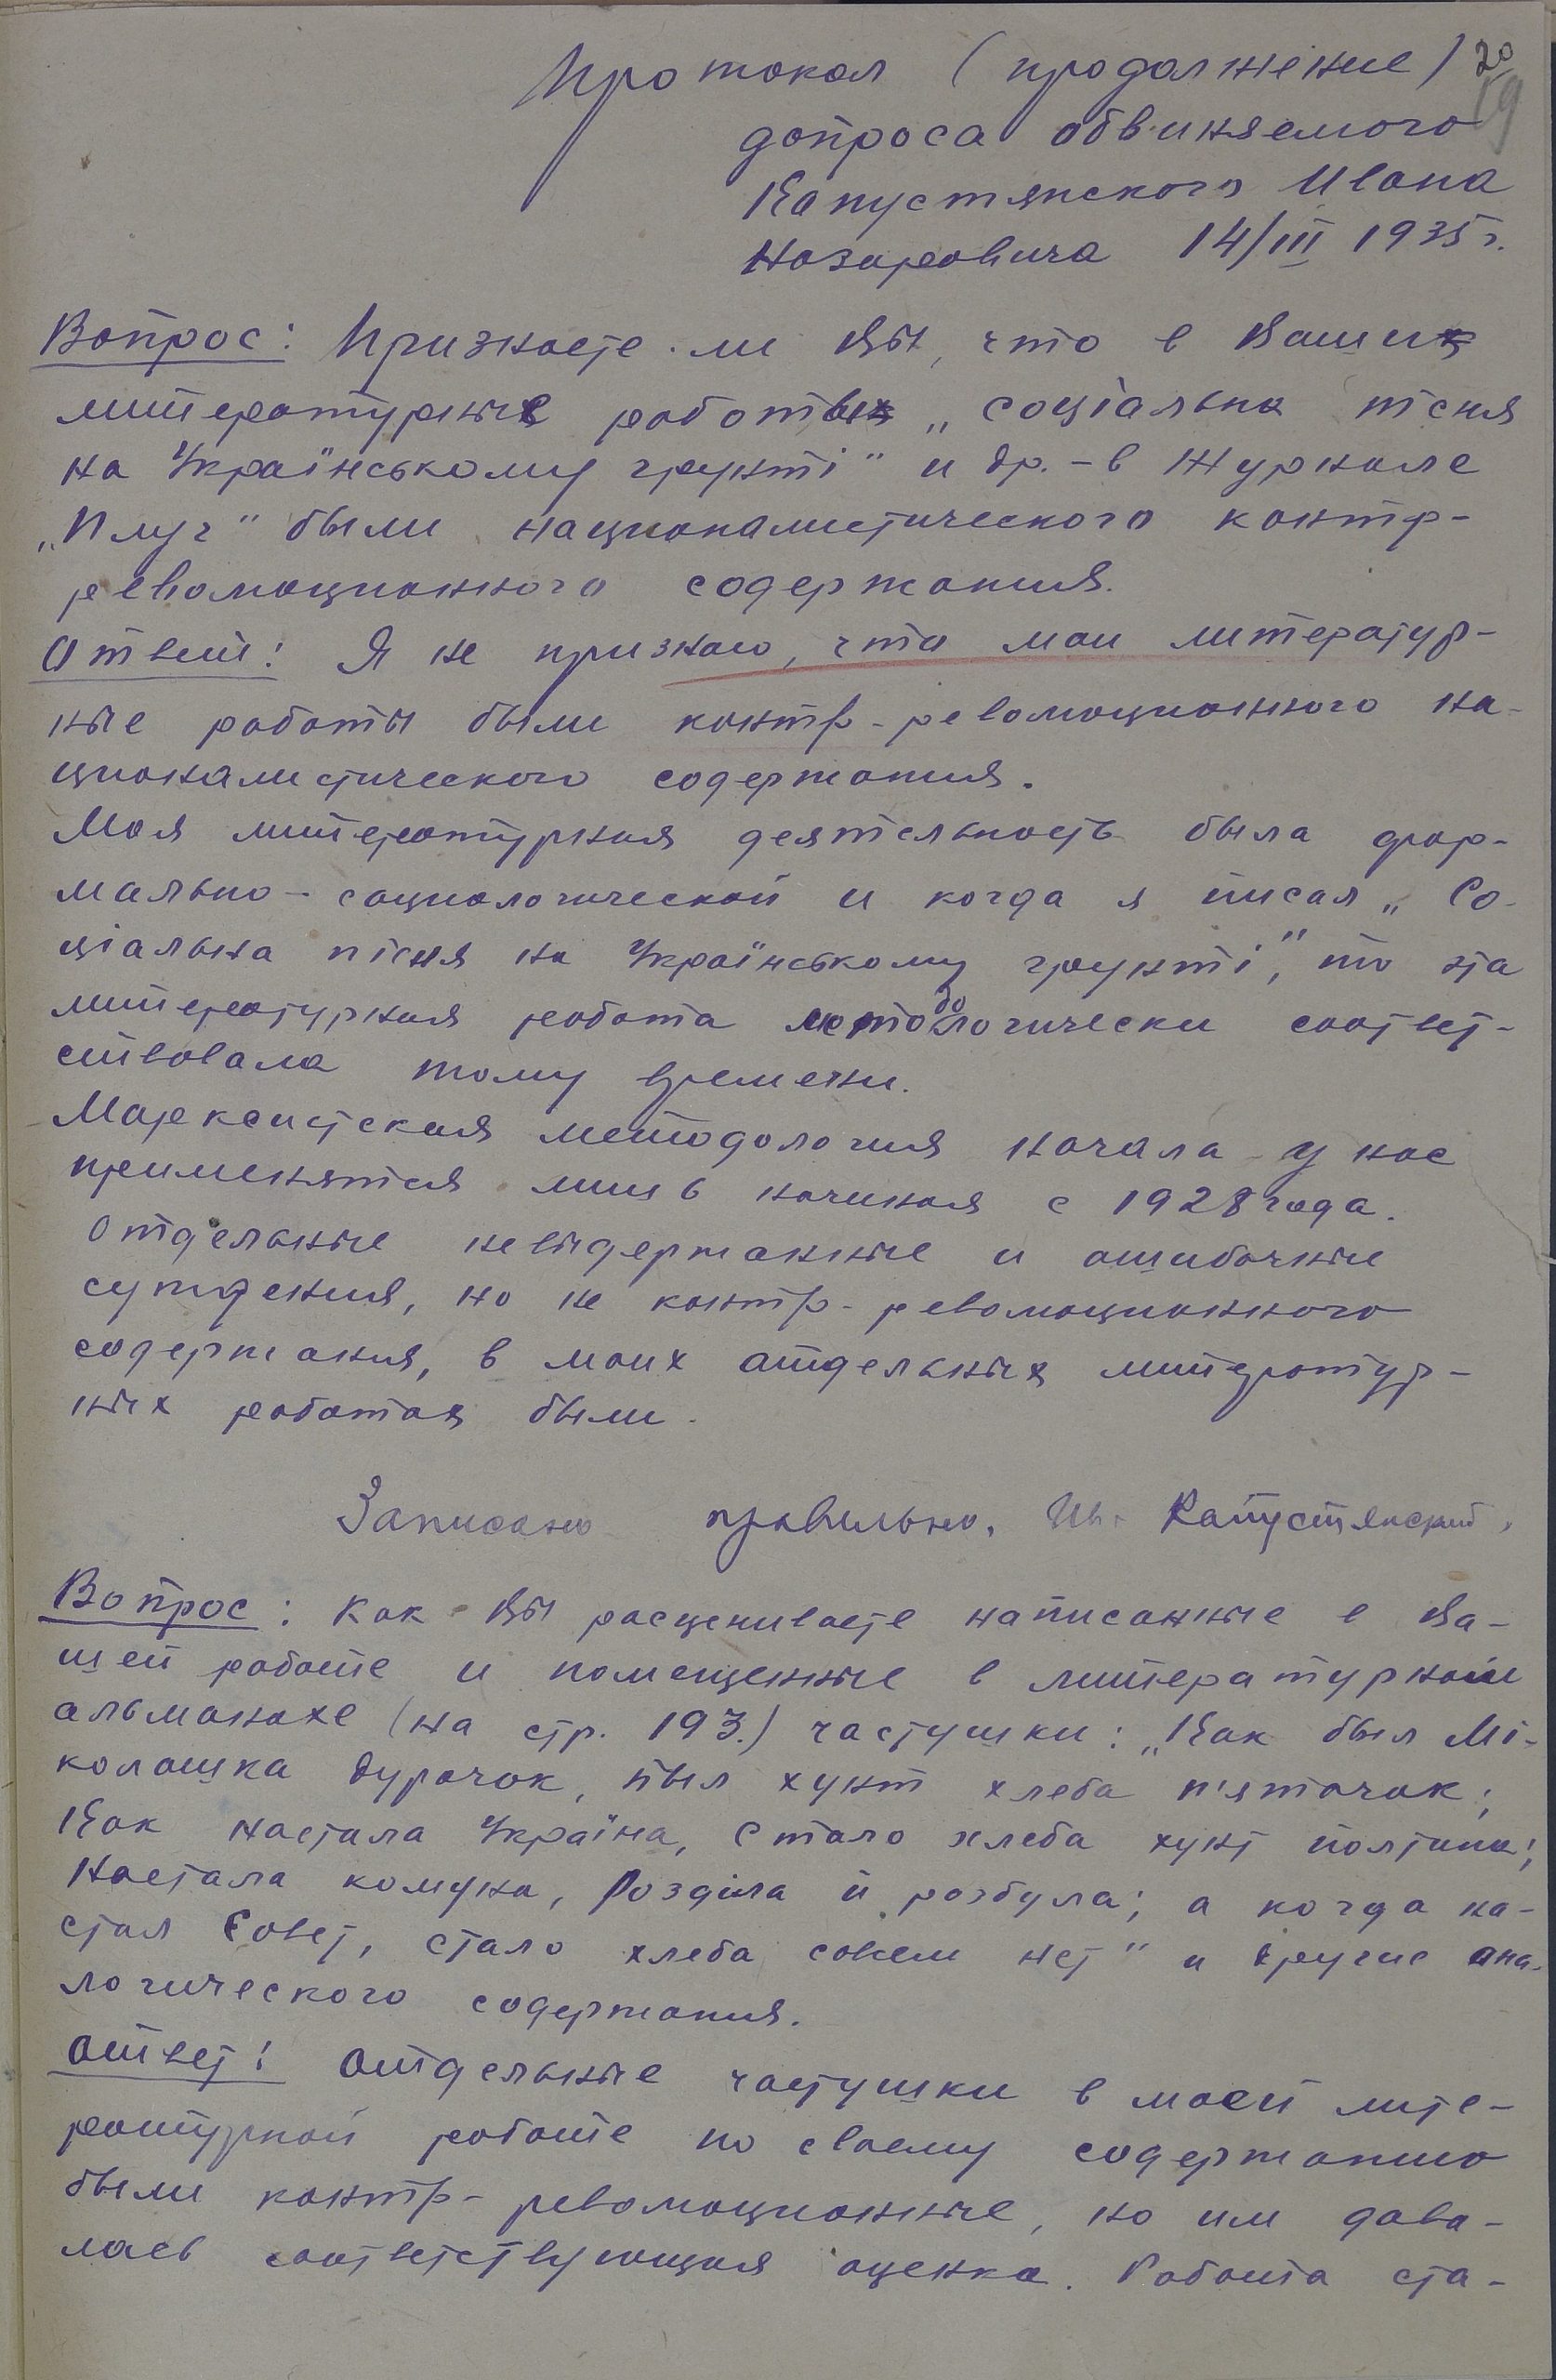 Протокол (продолжение) 20
19
допроса обвиняемого
Капустянского Ивана
Назаровича 14/III 1935 г.
Вопрос: Признаете ли Вы, что в Ваших
литературных работах „соціальна пісня
на Українському грунті" и др. – в журнале
„Плуг" были националистического контр-
революционного содержания.
Ответ: Я не признаю, что мои литератур-
ные работы были контр-революционного на-
ционалистического содержания.
Моя литературная деятельность была фор-
мально-социологической и когда я писал „Со-
ціальна пісня на Українському грунті", то эта
литературная работа методологически соответ-
ствовала тому времени.
Марксистская методология начала у нас
применятся лишь начиная с 1928 года.
Отдельные невыдержанные и ошибочные
суждения, но не контр-революционного
содержания, в моих отдельных литератур-
ных работах были.
Записано правильно. Ив. Капустянский.
Вопрос: Как Вы расцениваете написанные в Ва-
шей работе и помещенные в литературном
альманахе (на стр. 193.) частушки: „Как был Мі-
колашка дурачок, был хунт хлеба п'ятачок;
Как настала Україна, стало хлеба хунт полтина;
Настала комуна, Розділа й розбула; а когда на-
стал Совет, стало хлеба совсем нет" и другие ана-
логического содержания.
Ответ: Отдельные частушки в моей лите-
ратурной работе по своему содержанию
были контр-революционные, но им дава-
лась соответствующая оценка. Работа ста-